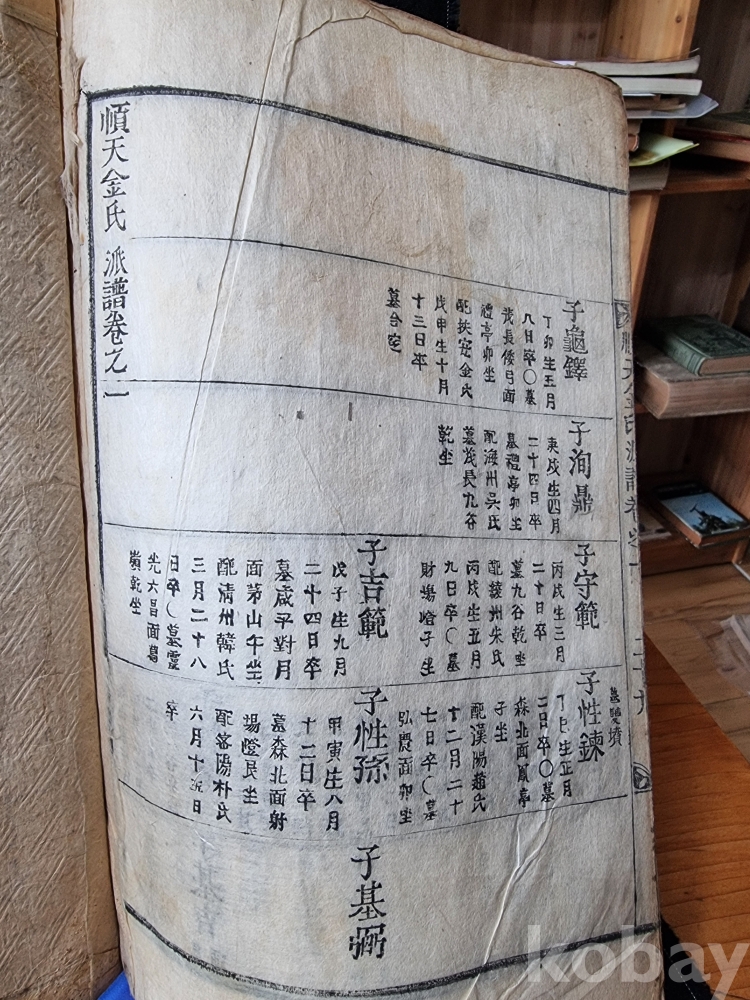 順天金氏派譜卷之一
二十九
子龜鐸
丁卯生五月
八日卒〇墓
茂長倭弓面
禮亭卯坐
配扶安金氏
戊申生十月
十三日卒
墓合窆
子洵鼎
庚戌生四月
二十四日卒
墓禮亭卯坐
配海州吳氏
墓茂長九谷
乾坐
子守範
丙戌生三月
二十日卒
墓九谷乾坐
配綾州朱氏
丙戌生五月
九日卒〇墓
財場燈子坐
子吉範
戊子生九月
二十四日卒
墓咸平對月
面茅山午坐
配清州韓氏
三月二十八
日卒〇墓靈
光六昌面葛
嶺乾坐
墓雙墳
子性鍊
丁巳生正月
二日卒〇墓
森北面鳳亭
子坐
配漢陽趙氏
十二月二十
七日卒〇墓
弘農面卯坐
子性孫
甲寅生八月
十二日卒
墓森北面射
場燈艮坐
配密陽朴氏
六月十九日
卒
子基弼
kobay